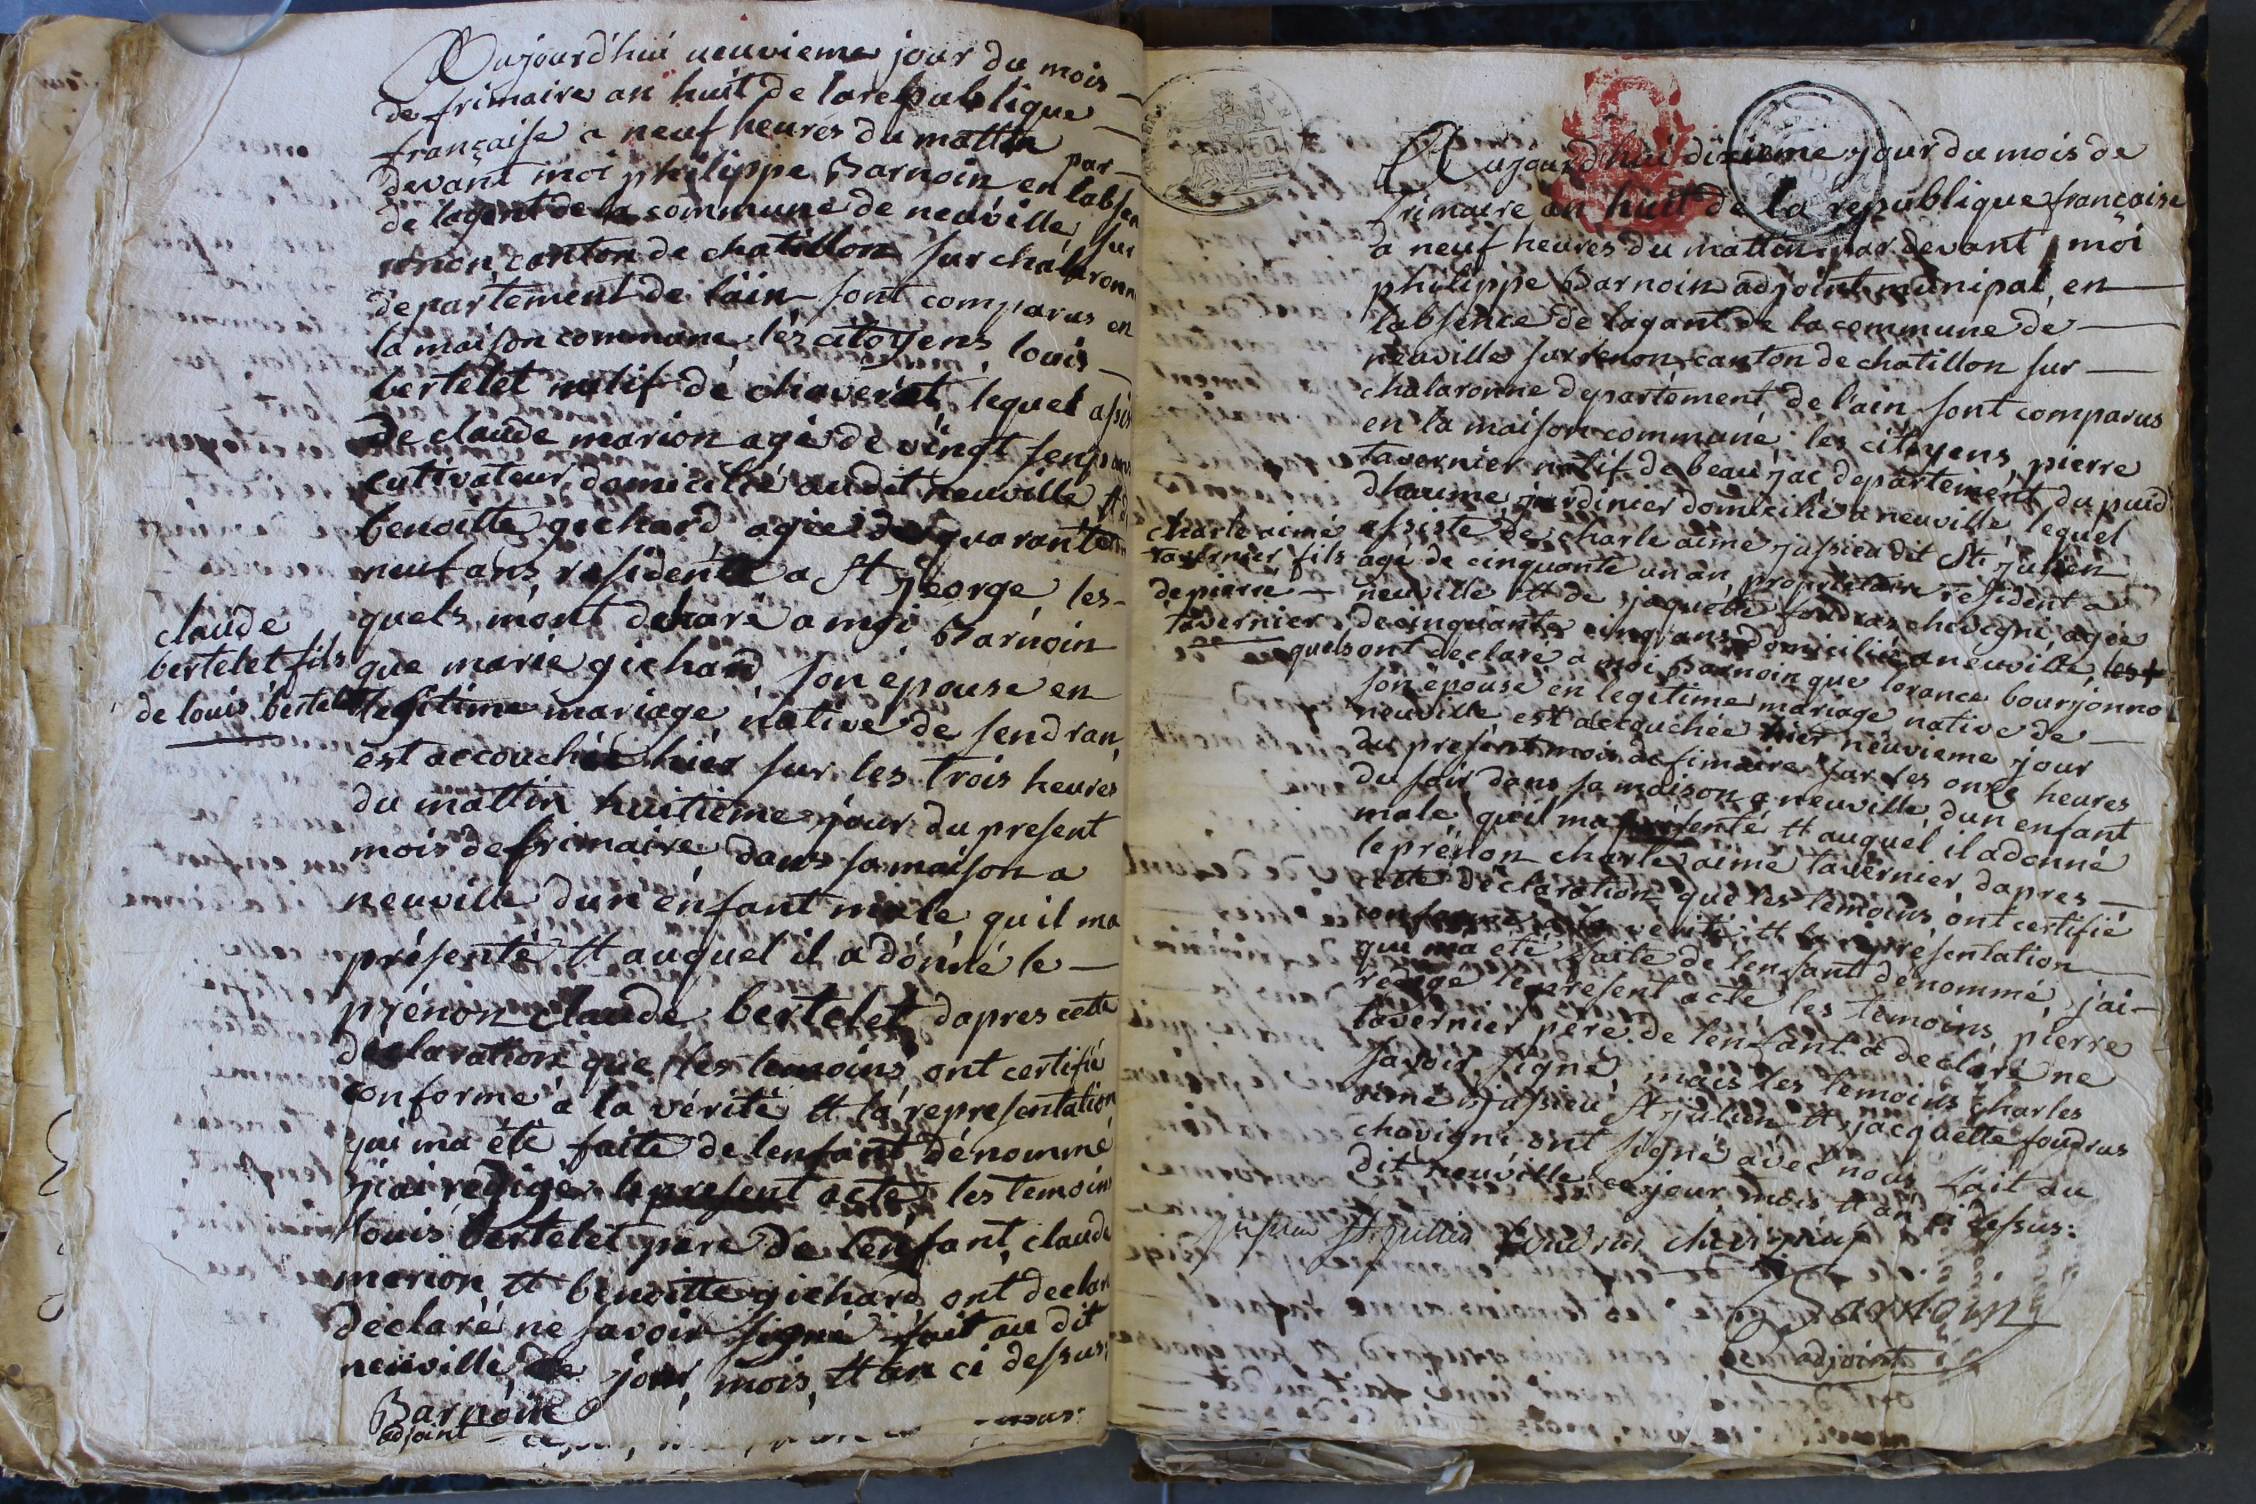 Aujourd'hui neuvieme jour du mois
de frimaire an huit de la republique
française a neuf heures du mattin par
devant moi philippe Barnoin en labsen
de lagent de la commune de neuville sur
renon canton de chatillon sur chalaronne
departement de l'ain sont comparus en
la maison commune les citoyens louis
bertelet natif de chaverat lequel assis
de claude marion agé de vingt sept ans
cutivateur domicilié audit neuville et de
benoitte gichard agée de quarante
neuf ans residente a St george les-
quels m'ont declaré a moi Barnoin
que marie gichard son epouse en
legitime mariage native de sendran
est accouchée hier sur les trois heures
du mattin huitieme jour du present
mois de frimaire dans sa maison a
neuville dun enfant male qu'il ma
présenté et auquel il a donné le
prénon claude bertelet dapres cette
declaration que les temoins ont certifié
conforme a la vérité et la representation
qui ma été faite de lenfant dénommé
j'ai redigé le present acte les temoins
louis bertelet pere de lenfant claude
marion et benoitte gichard ont declaré
declaré ne savoir signé fait au dit
neuville jour mois et an ci dessus
Barnoin
adjoint
claude
bertelet fils
de louis bertelet
Aujourd'hui dixieme jour du mois de
frimaire an huit de la republique française
a neuf heures du mattin par devant moi
philippe Barnoin adjoint munipal en
labsence de lagant de la commune de
neuville sur renon canton de chatillon sur
chalaronne departement de l'ain sont comparus
en la maison commune les citoyens pierre
tavernier natif de beaujac departement du puid
dhaume jardinier domicilié a neuville lequel
assisté de charle aimé jussieu dit St julien
agé de cinquante un an proprietaire resident a
neuville et de jaquette foudras chevigni agée
de cinquante cinq ans domiciliée a neuville les
quels ont declaré a moi Barnoin que lorance bourjonno
son épouse en legitime mariage native de
neuville est accouchée hier neuvieme jour
du present mois de fimaire sur les onze heures
du soir dans sa maison a neuville dun enfant
male quil ma presenté et auquel il a donné
le prénon charle aimé tavernier dapres
cette déclaration que les temoins ont certifié
conforme a la verité et la representation
qui ma été faite de lenfant denommé j'ai
redigé le present acte les temoins pierre
tavernier pere de lenfant a declaré ne
savoir signé mais les temoins charles
aimé jussieu St julien et jacquette foudras
chavigni ont signé avec nous fait au
dit neuville ce jour mois et an ci dessus:
jussieu St jullien foudras chevigni
Barnoin
adjoint
charle aimé
tavernier fils
de pierre
tavernier